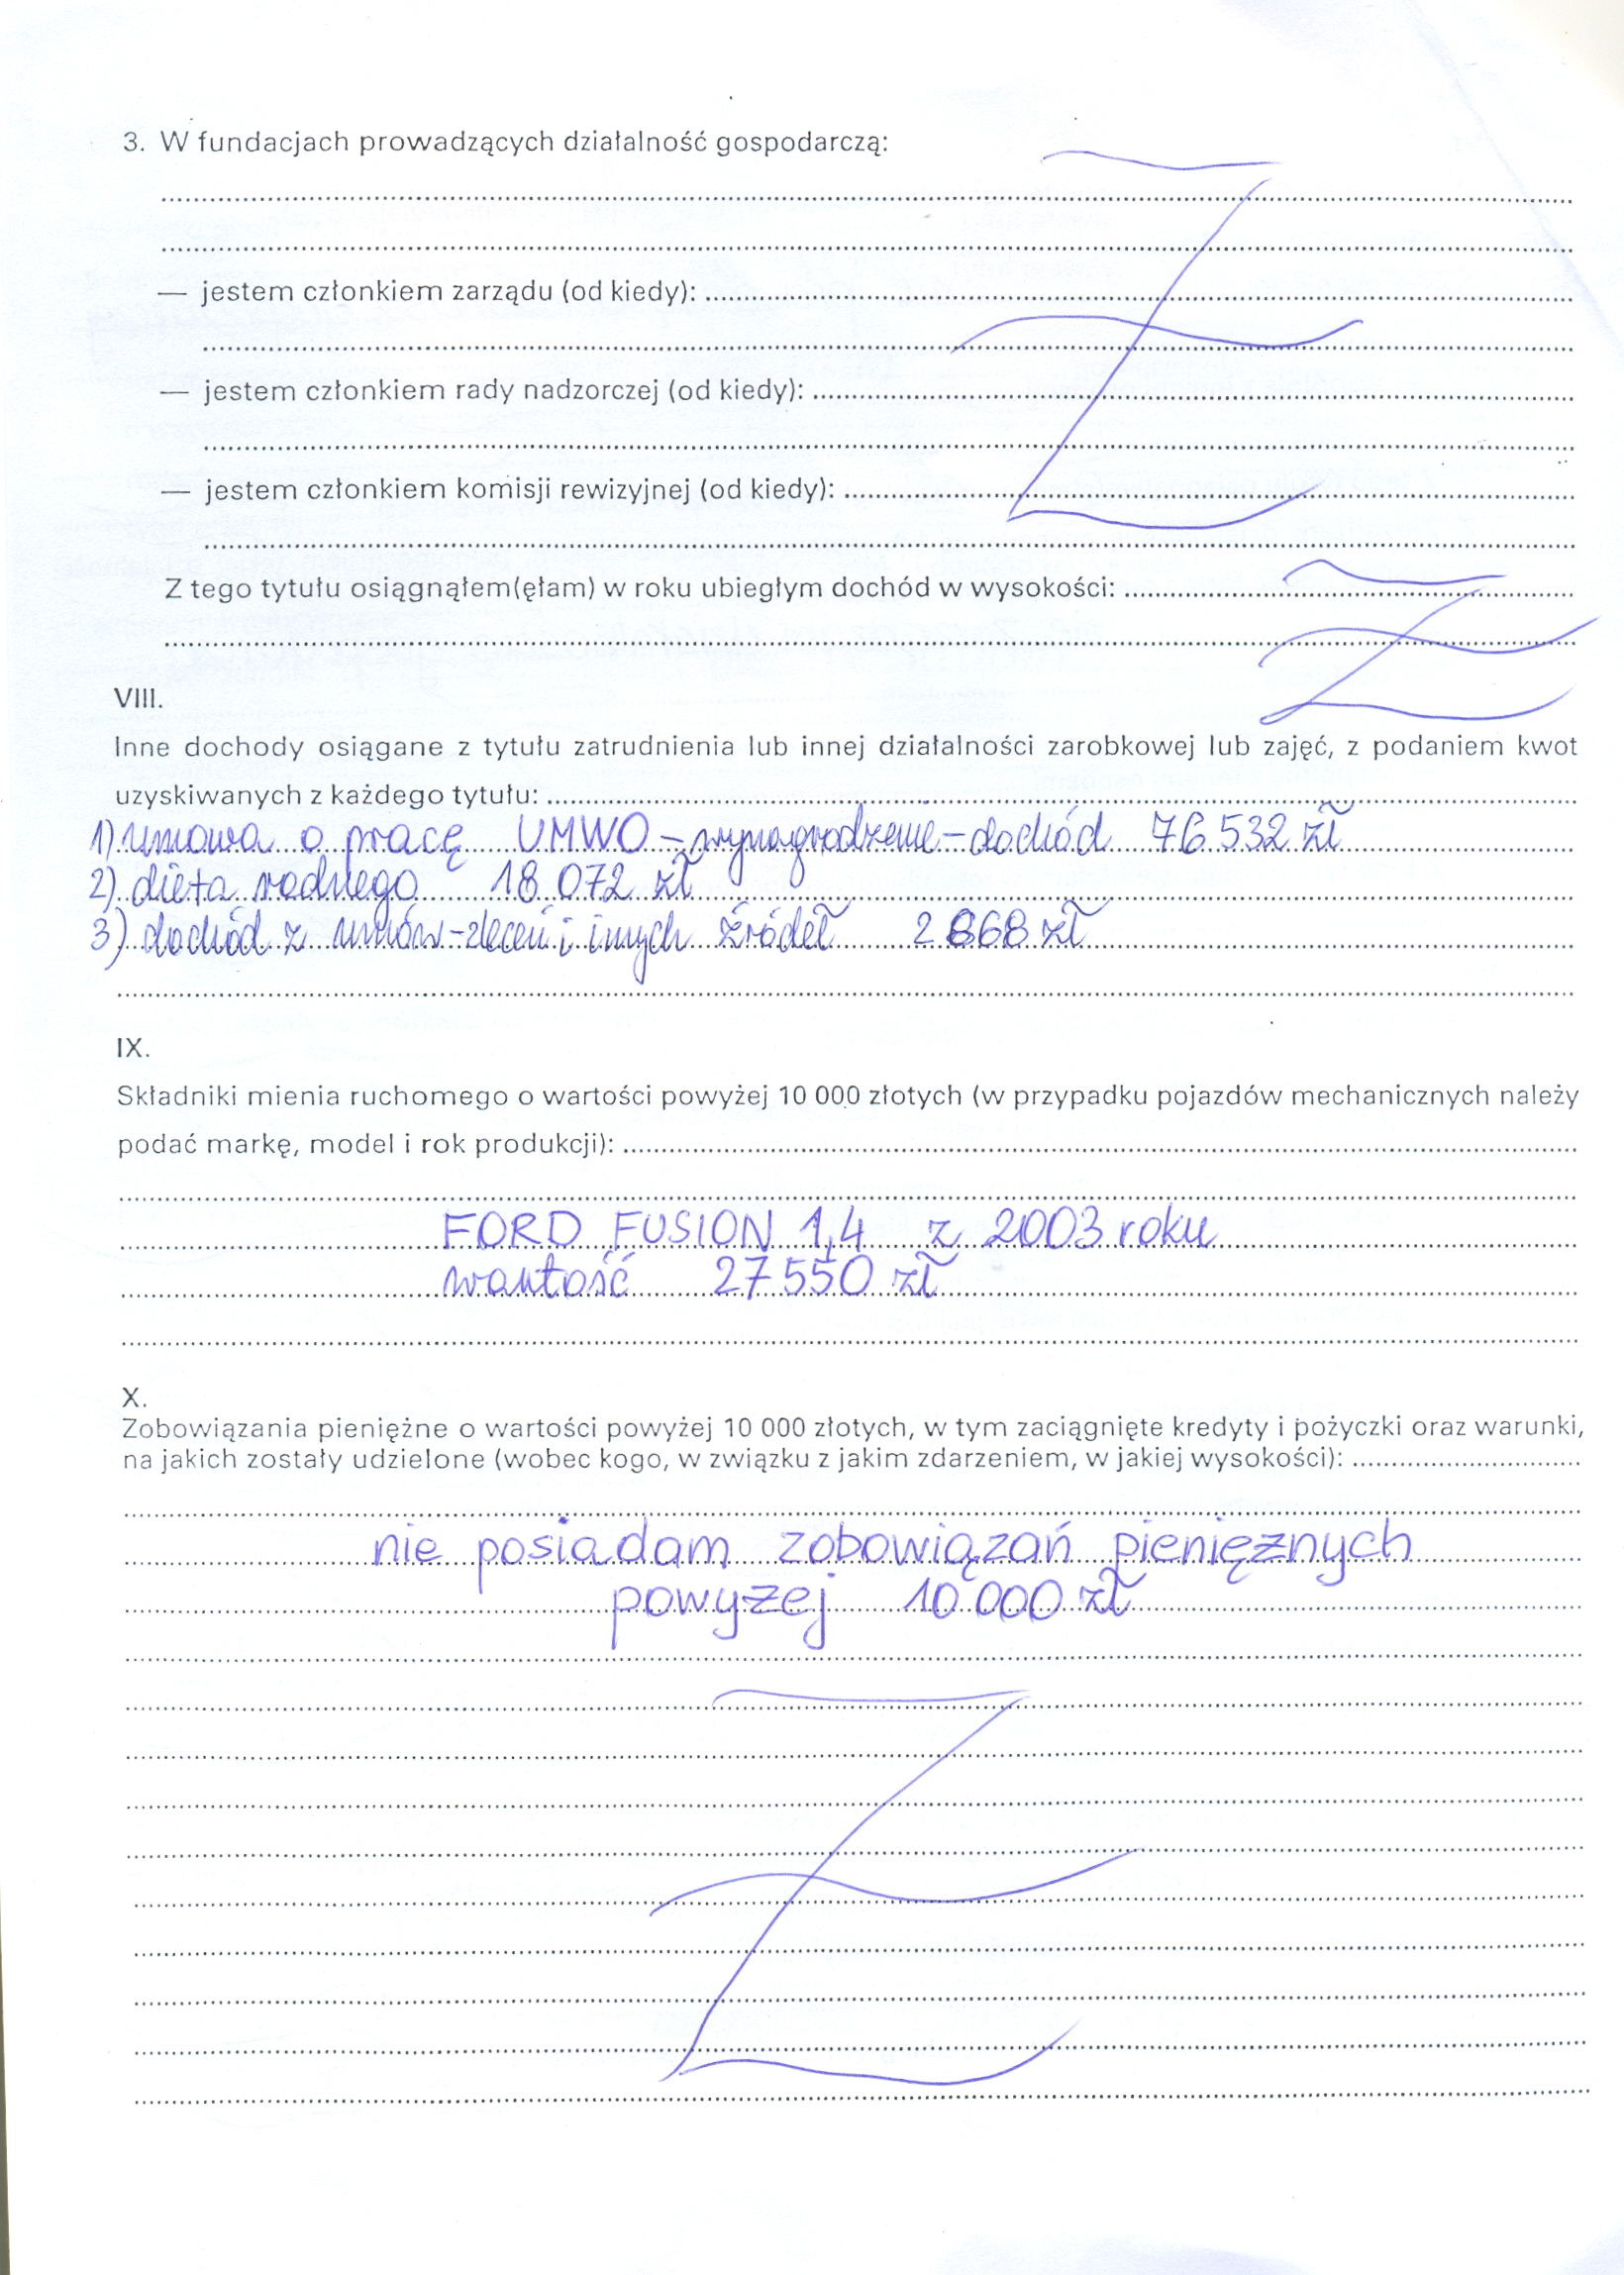 3. W fundacjach prowadzących działalność gospodarczą:
— jestem członkiem zarządu (od kiedy):
— jestem członkiem rady nadzorczej (od kiedy):
— jestem członkiem komisji rewizyjnej (od kiedy):
Z tego tytułu osiągnąłem(ęłam) w roku ubiegłym dochód w wysokości:
VIII.
Inne dochody osiągane z tytułu zatrudnienia lub innej działalności zarobkowej lub zajęć, z podaniem kwot
uzyskiwanych z każdego tytułu:
1) umowa o pracę UMWO – wynagrodzenie – dochód 76 532 zł
2) dieta radnego 18 072 zł
3) dochód z umów-zleceń i innych źródeł 2 868 zł
IX.
Składniki mienia ruchomego o wartości powyżej 10 000 złotych (w przypadku pojazdów mechanicznych należy
podać markę, model i rok produkcji):
FORD FUSION 1,4 z 2003 roku
wartość 27 550 zł
X.
Zobowiązania pieniężne o wartości powyżej 10 000 złotych, w tym zaciągnięte kredyty i pożyczki oraz warunki,
na jakich zostały udzielone (wobec kogo, w związku z jakim zdarzeniem, w jakiej wysokości):
nie posiadam zobowiązań pieniężnych
powyżej 10 000 zł